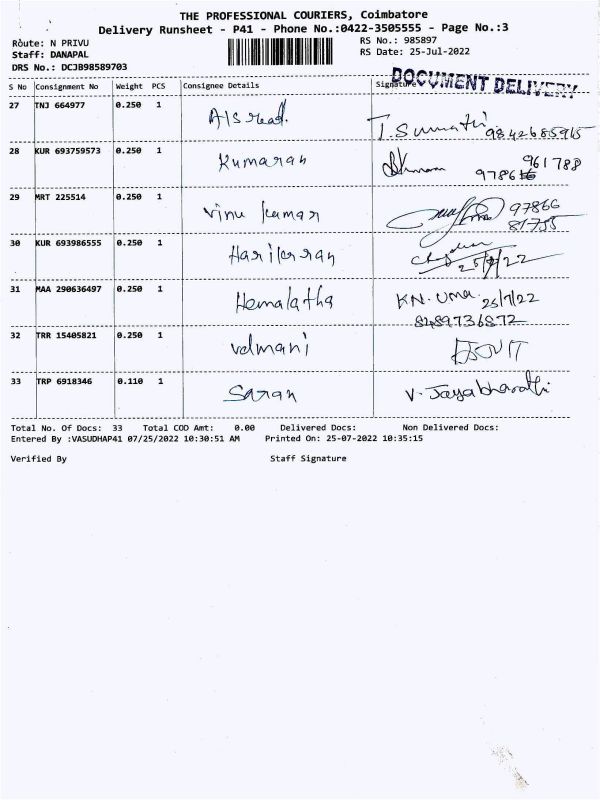 THE PROFESSIONAL COURIERS, Coimbatore
Delivery Runsheet - P41 - Phone No.:0422-3505555 - Page No.:3
Route: N PRIVU RS No.: 985897
Staff: DANAPAL RS Date: 25-Jul-2022
DRS No.: DCJB98589703
DOCUMENT DELIVERY
S No Consignment No Weight PCS Consignee Details Signature
27 TNJ 664977 0.250 1 T. Sumathi 9842685915
28 KUR 693759573 0.250 1 Kumaran 961788
97861
29 MRT 225514 0.250 1 Vinu kumar 97866
81755
30 KUR 693986555 0.250 1 Hariharan
25/7/22
31 MAA 290636497 0.250 1 Hemalatha KN. Uma. 25/7/22
8489736872
32 TRR 15405821 0.250 1 velmani
33 TRP 6918346 0.110 1 Saran V. Jayabharathi
Total No. Of Docs: 33 Total COD Amt: 0.00 Delivered Docs: Non Delivered Docs:
Entered By :VASUDHAP41 07/25/2022 10:30:51 AM Printed On: 25-07-2022 10:35:15
Verified By Staff Signature